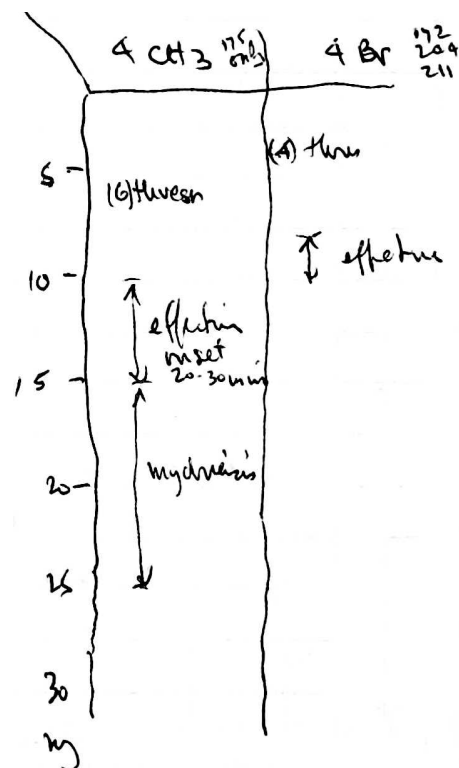 4 CH3 175 only
4 Br 172
204
211
5
(4) thres
(6) thresh
effective
10
effective
onset
15
20-30 min
mydriasis
20
25
30
mg